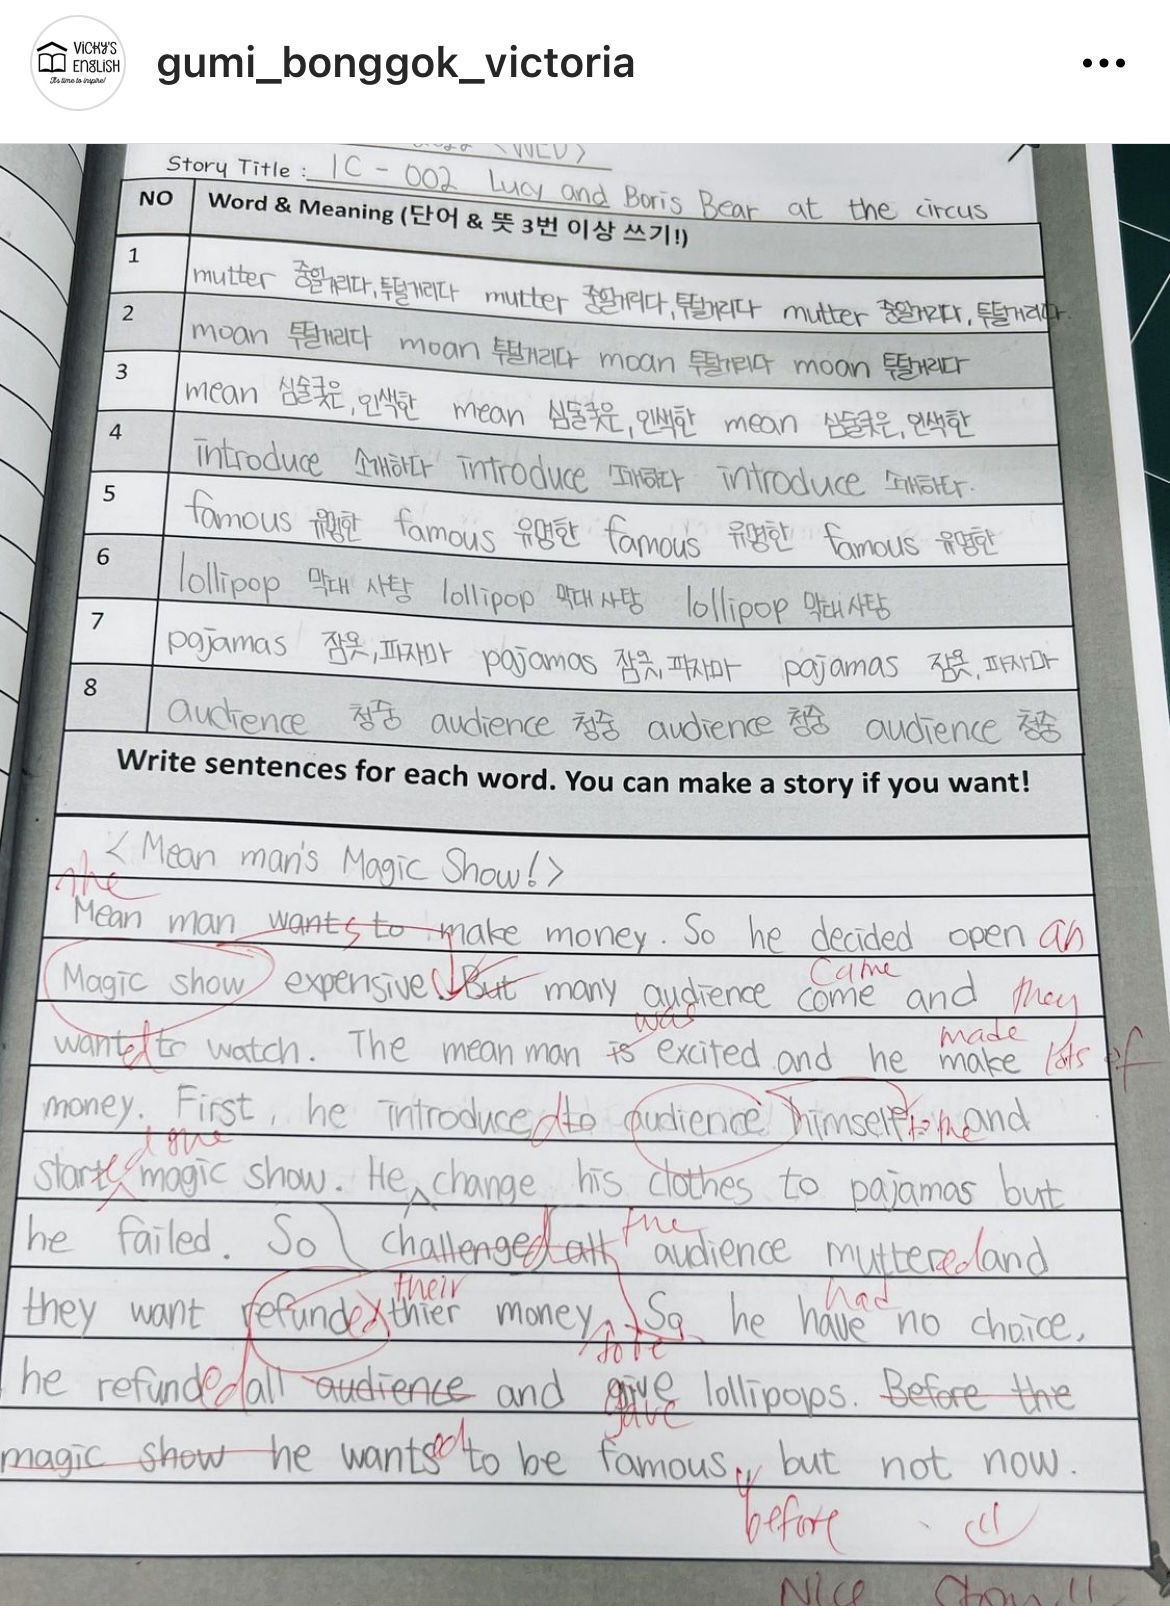 VICKY'S
ENGLISH
It's time to inspire!
gumi_bonggok_victoria
<WED>
Story Title : 1C - 002 Lucy and Boris Bear at the circus
NO Word & Meaning (단어 & 뜻 3번 이상 쓰기!)
1 mutter 중얼거리다, 투덜거리다 mutter 중얼거리다, 투덜거리다 mutter 중얼거리다, 투덜거리다
2 moan 투덜거리다 moan 투덜거리다 moan 투덜거리다 moan 투덜거리다
3 mean 심술궂은, 인색한 mean 심술궂은, 인색한 mean 심술궂은, 인색한
4 introduce 소개하다 introduce 소개하다 introduce 소개하다.
5 famous 유명한 famous 유명한 famous 유명한 famous 유명한
6 lollipop 막대 사탕 lollipop 막대 사탕 lollipop 막대 사탕
7 pajamas 잠옷, 파자마 pajamas 잠옷, 파자마 pajamas 잠옷, 파자마
8 audience 청중 audience 청중 audience 청중 audience 청중
Write sentences for each word. You can make a story if you want!
<Mean man's Magic Show!>
the
Mean man wants to make money. So he decided open an
Magic show expensive. But many audience come and they
came
wanted to watch. The mean man is excited and he make lots of
was made
money. First, he introduced to audience himself and
started magic show. He change his clothes to pajamas but
he failed. So challenged all audience muttered and
the
they want refunded thier money. So he have no choice,
their had
to be
he refunded all audience and give lollipops. Before the
gave
magic show he wants to be famous, but not now.
before
Nice